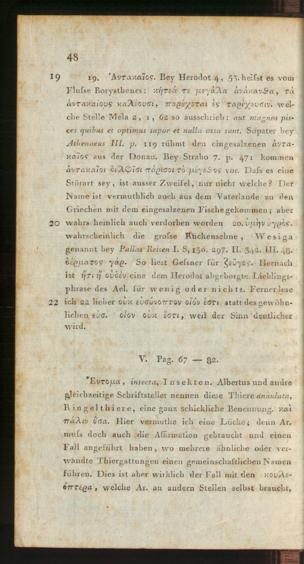 48
19 19. Ἀντακαῖος. Bey Herodot 4, 53. heifst es vom
Flufse Borysthenes: κήτεά τε μεγάλα ἀνάκανθα, τὰ
ἀντακαίους καλέουσι, παρέχεται ἐς ταρίχευσιν. wel-
che Stelle Mela 2, 1, 62 so ausschrieb: aut magnos pis-
ces quibus et optimus sapor et nulla ossa sunt. Sopater bey
Athenaeus III. p. 119 rühmt den eingesalzenen ἀντα-
καῖος aus der Donau. Bey Strabo 7. p. 471 kommen
ἀντακαῖοι δελφῖσι πάρισοι τὸ μέγεθος vor. Dafs es eine
Störart sey, ist ausser Zweifel, nur nicht welche? Der
Name ist vermuthlich auch aus dem Vaterlande zu den
Griechen mit dem eingesalzenen Fische gekommen; aber
20 wahrscheinlich auch verdorben worden 20. ὑμὴν ὑγρός.
wahrscheinlich die grofse Küchenselme, Wesiga
genannt bey Pallas Reisen I. S, 130. 297. II. S. 342. III. 48.
δέρματος γάρ. So liest Gefsner für ζεῦγος. Hernach
ist ἤτι ἢ οὐδὲν eine dem Herodot abgeborgte Lieblings-
phrase des Ael. für wenig oder nichts. Ferner lese
22 ich 22 lieber οὐκ εὐσύνοπτον οἷόν ἐστι. statt des gewöhn-
lichen εὐσ. οἷον οὐκ ἐστι, weil der Sinn deutlicher
wird.
V. Pag. 67 — 82.
Ἔντομα, insecta, Insekten. Albertus und andre
gleichzeitige Schriftsteller nennen diese Thiere anulata,
Ringelthiere, eine ganz schickliche Benennung. καὶ
πάλιν ὅσα. Hier vermuthe ich eine Lücke; denn Ar.
mufs doch auch die Affirmation gebraucht und einen
Fall angeführt haben, wo mehrere ähnliche oder ver-
wandte Thiergattungen einen gemeinschaftlichen Namen
führen. Dies ist aber wirklich der Fall mit den κουλε-
όπτερα, welche Ar. an andern Stellen selbst braucht,